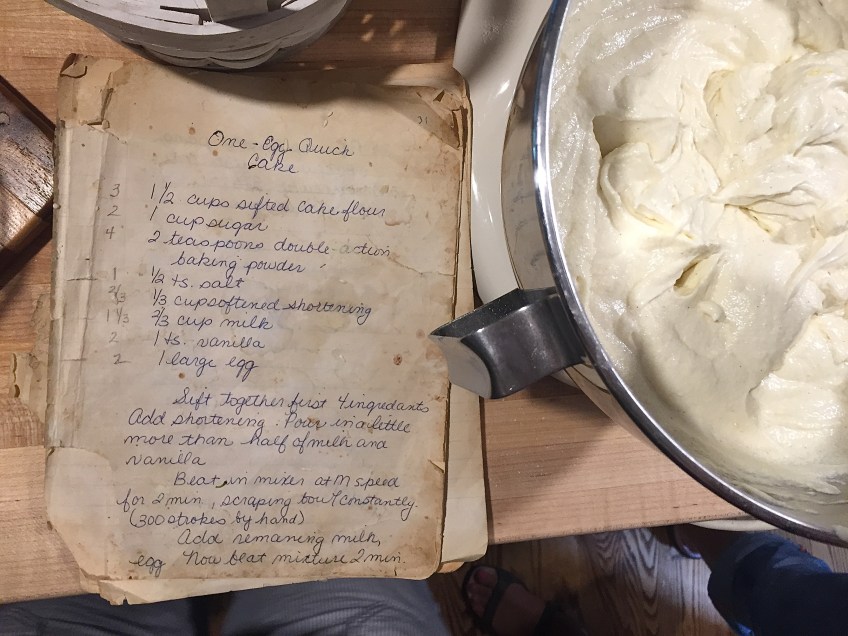 One-Egg Quick
Cake
3 1 1/2 cups sifted cake flour
2 1 cup sugar
4 2 teaspoons double-action
baking powder
1 1/2 ts. salt
2/3 1/3 cup softened shortening
1 1/3 2/3 cup milk
2 1 ts. vanilla
2 1 large egg
Sift together first 4 ingredants
Add shortening. Pour in a little
more than half of milk and
vanilla
Beat in mixer at M speed
for 2 min, scraping bowl constantly.
(300 strokes by hand)
Add remaning milk,
egg Now beat mixture 2 min.